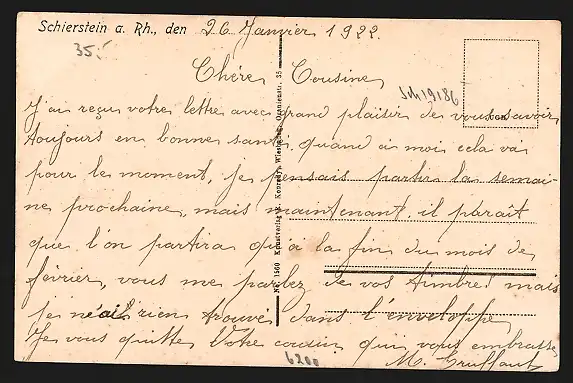 Schierstein a. Rh., den 26 Janvier 1922.
35.-
Chère Cousine,
Sch19186
J'ai reçu votre lettre avec grand plaisir de vous savoir
toujours en bonne santé, quand à moi cela va
pour le moment, je pensais partir la semai-
ne prochaine, mais maintenant, il paraît
que l'on partira qu'à la fin du mois de
février, vous me parlez de vos timbres mais
je n'ai rien trouvé dans l'enveloppe
Je vous quitte Votre cousin qui vous embrasse
6200
Nr. 1560 Kunstverlag K. Konrad, Wiesbaden, Oranienstr. 35